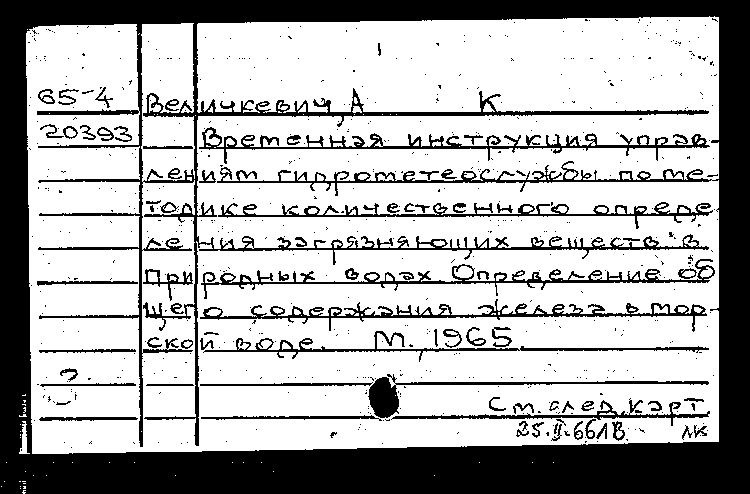 65-4 Величкевич, А К
20393 Временная инструкция управ-
лениям гидрометеослужбы по ме-
тодике количественного опреде
ления загрязняющих веществ в
природных водах Определение об
щего содержания железа в мор-
ской воде. М., 1965.
См. след. карт.
25.II.66 ЛВ ЛК